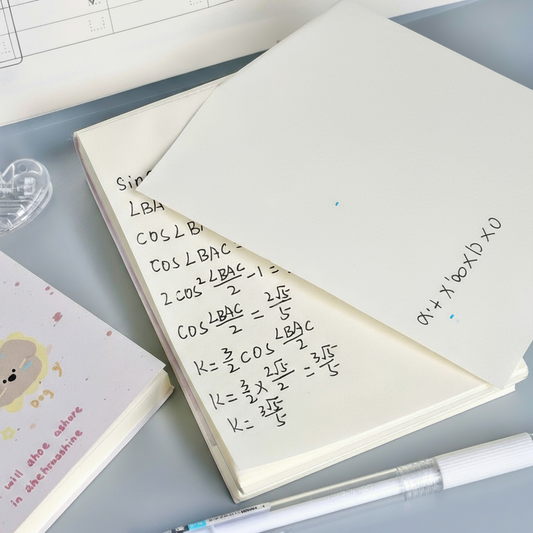 Sin
∠BA
COS∠BA
COS∠BAC =
2cos²∠BAC/2 - 1 =
COS∠BAC/2 = 2√5/5
K = 3/2 cos ∠BAC/2
K = 3/2 × 2√5/2 = 3√5/5
K = 3√5/5
Dog y
will ahoe ashore
in anehroashine